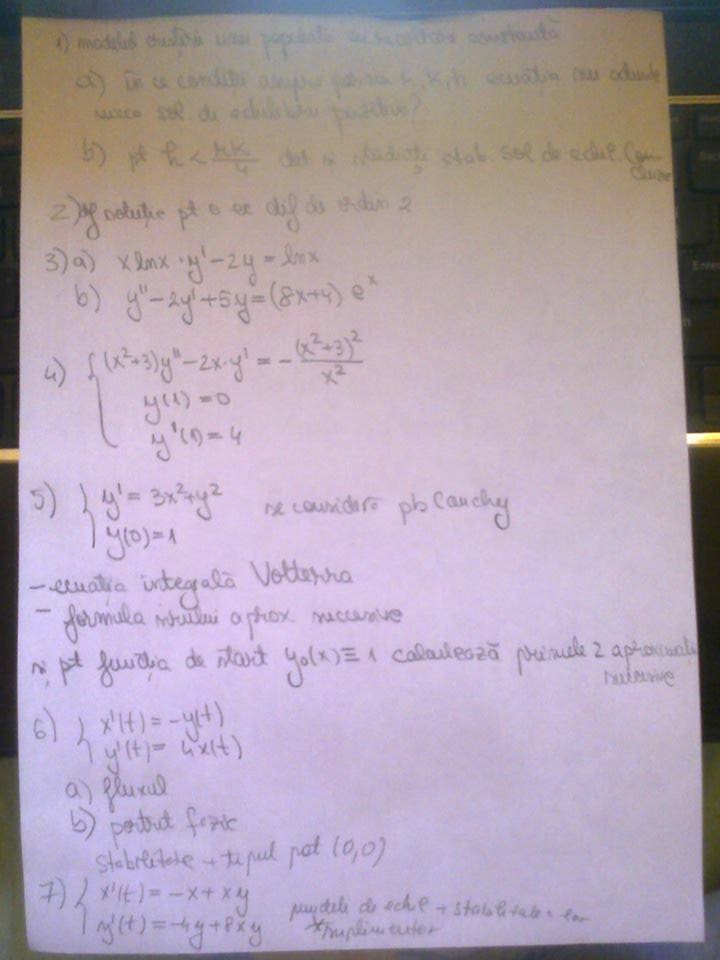 1) modelul creșterii unei populații cu recoltare constantă
a) în ce condiții asupra param r, K, h ecuația nu admite
nicio sol. de echilibru pozitivă?
b) pt h < rK/4 det și studiați stab. sol de echil. Con-
cluzie
2) Def soluție pt o ec dif de ordin 2
3) a) x lnx · y' - 2y = lnx
b) y'' - 2y' + 5y = (8x+4) e^x
4) { (x²+3)y'' - 2x·y' = - (x²+3)²/x²
y(1) = 0
y'(1) = 4
5) { y' = 3x²+y² se consideră pb Cauchy
y(0) = 1
- ecuația integrală Volterra
- formula șirului aprox succesive
și pt funcția de start y₀(x) ≡ 1 calculează primele 2 aproximații
succesive
6) { x'(t) = -y(t)
y'(t) = 4x(t)
a) fluxul
b) portret fazic
stabilitate + tipul pct (0,0)
7) { x'(t) = -x + xy
y'(t) = -4y + 8xy punctele de echil + stabilitatea lor